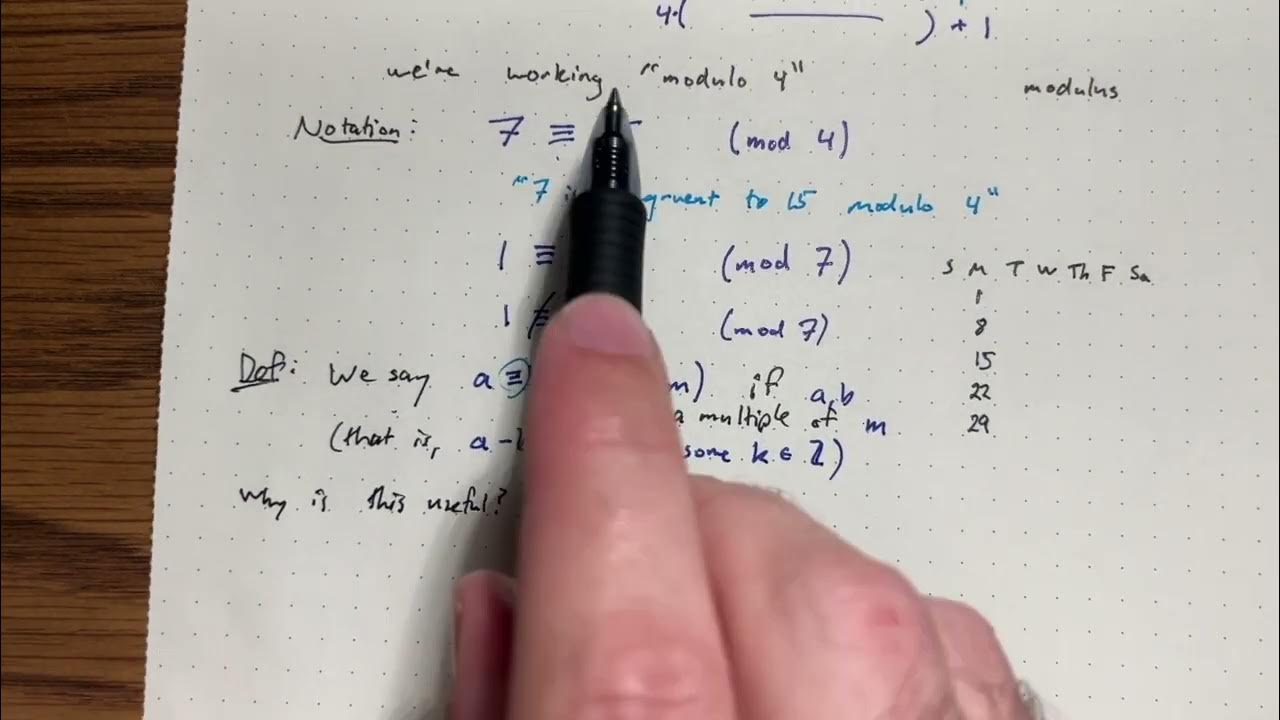 4·( ) + 1
we're working "modulo 4" modulus
Notation: 7 ≡ (mod 4)
"7 to 15 modulo 4"
1 ≡ (mod 7) S M T W Th F Sa
1
1 ≢ (mod 7) 8
15
Def: We say a ≡ m) if a, b 22
(that is, a - a multiple of m 29
some k ∈ ℤ)
Why is this useful?